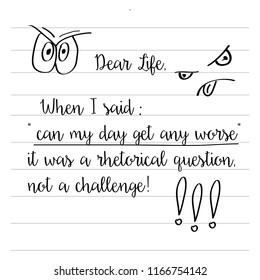 Dear Life,
When I said :
"can my day get any worse"
it was a rhetorical question,
not a challenge!
!!!
shutterstock.com · 1166754142